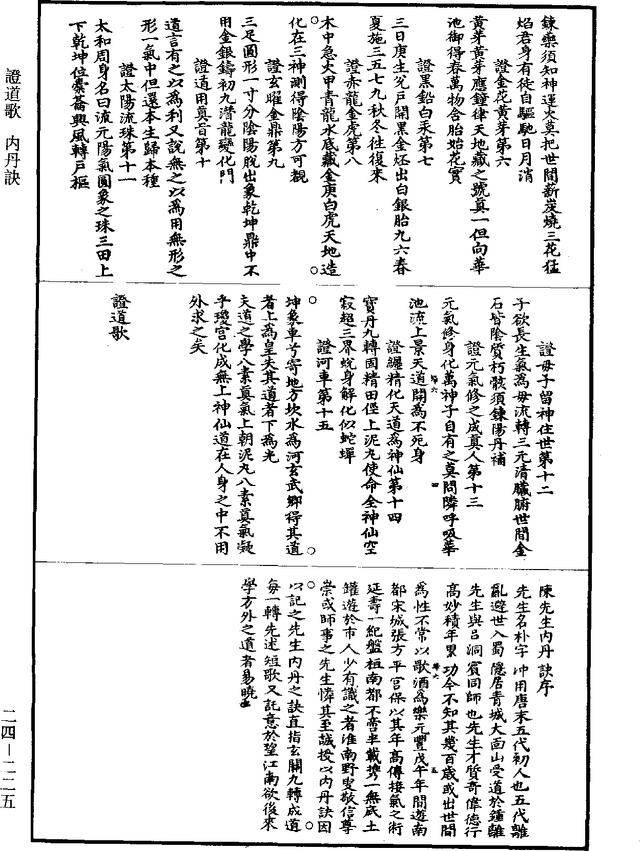 鍊藥須知神運火莫把世間薪炭燒三花猛
焰君身有徒自驅馳日月消
證金花黃芽第六
黃芽黃芽應鐘律天地藏之號真一但向華
池御得春萬物含胎始花實
證黑鉛白汞第七
三日庚生兌戶開黑金坯出白銀胎九六春
夏施三五七九秋冬往復來
證赤龍金虎第八
木中急火甲青龍水底藏金庚白虎天地造
化在三神測得陰陽方可覩
證玄曜金鼎第九
三足圓形一寸分陰陽脫出象乾坤鼎中不
用金銀鑄初九潛龍變化門
證道用真音第十
道言有之以為利又說無之以為用無形之
形一氣中但還本生歸本種
證太陽流珠第十一
太和周身名曰流元陽氣圓象之珠三田上
下乾坤位橐籥興風轉戶樞
證母子留神住世第十二
子欲長生氣為母流轉三元清臟腑世間金
石皆陰質朽骸須鍊陽丹補
證元氣修之成真人第十三
元氣修身化萬神子自有之莫問隣呼吸華
池流上景天道開為不死身
證纙精化天道為神仙第十四
寶丹九轉固精田徑上泥丸使命全神仙空
寂超三界蛻身解化似蛇蟬
證河車第十五
坤象車兮寄地方坎水為河玄武鄉得其道
者上為皇失其道者下為光
夫道之學八素真氣上朝泥丸八素真氣凝
乎瓊宮化成無上神仙道在人身之中不用
外求之矣
證道歌
陳先生內丹訣序
先生名朴字冲用唐末五代初人也五代離
亂避世入蜀隱居青城大面山受道於鍾離
先生與呂洞賓同師也先生才質奇偉德行
高妙積年累功今不知其幾百歲或出世間
為性不常以歌酒為樂元豐戊午年間遊南
都宋城張方平宮保以其年高傳接氣之術
延壽一紀盤桓南都不啻半載攜一無底土
罐遊於市人少有識之者淮南野叟敬信尊
崇或師事之先生憐其至誠授以內丹訣因
以記之先生內丹之訣直指玄關九轉成道
每一轉先述短歌又託意於望江南欲後來
學方外之道者易曉
證道歌 內丹訣
二四—二二五